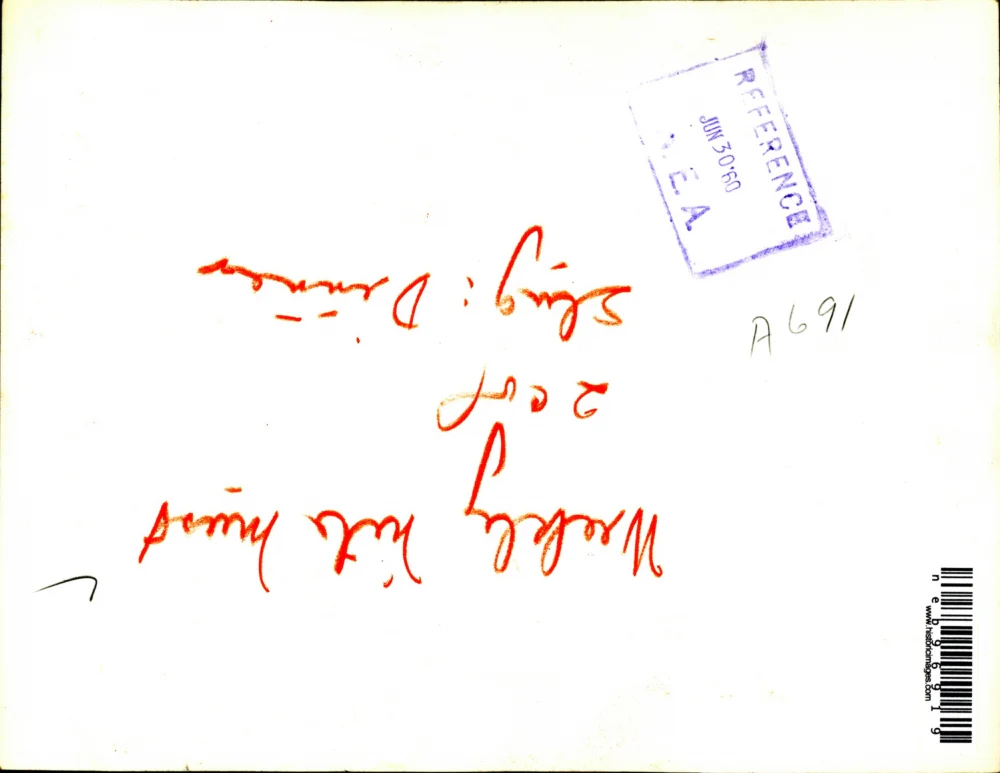 REFERENCE
JUN 30 '60
N. E. A
A691
Weekly
2 col
Slug: Dinner
neb96919
www.historicimages.com